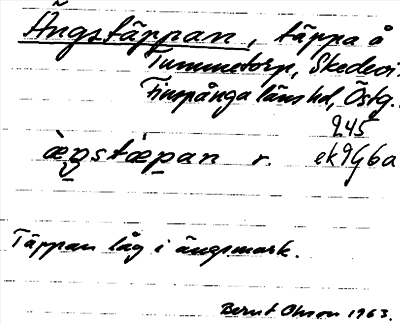 Ängstäppan, täppa å
Tummetorp, Skedevi s
Finspånga länshd, Östg.
245
æ̀ŋstæ̀pan r. ek 9G6a
Täppan låg i ängsmark.
Bernt Olsson 1963.